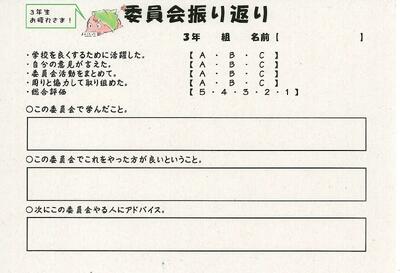 3年生
お疲れさま！
委員会振り返り
3年　組　名前【　　　　　】
・学校を良くするために活躍した。　【 A ・ B ・ C 】
・自分の意見が言えた。　【 A ・ B ・ C 】
・委員会活動をまとめて。　【 A ・ B ・ C 】
・周りと協力して取り組めた。　【 A ・ B ・ C 】
・総合評価　【 5 ・ 4 ・ 3 ・ 2 ・ 1 】
○この委員会で学んだこと。
○この委員会でこれをやった方が良いということ。
○次にこの委員会やる人にアドバイス。